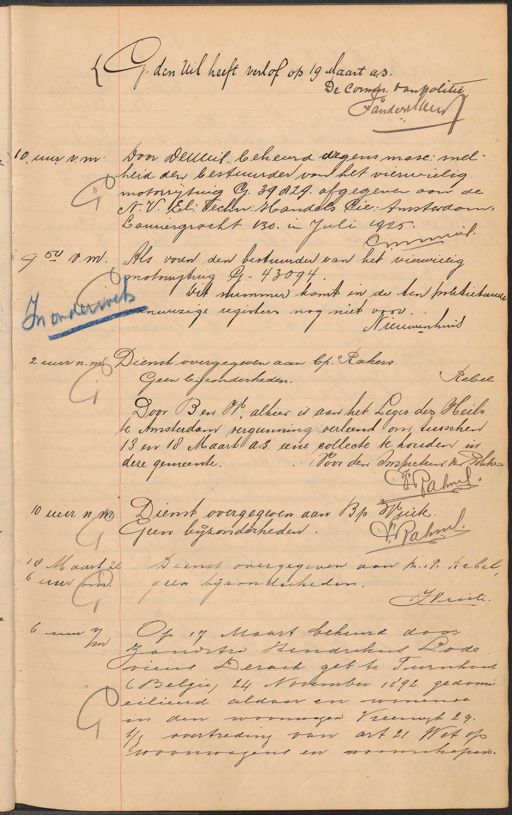 G. den Uil heeft verlof op 19 Maart a.s.
De Comm. van politie
10 uur v.m. Door Uil bekeurd wegens mel-
heid den bestuurder van het vierwielig
motorrijtuig G. 39829 afgegeven aan de
N.V. El. Techn. Handels Cie. Amsterdam,
Lauriergracht 130. in Juli 1925.
9 50 v.m. Als voren den bestuurder van het vierwielig
motorrijtuig G - 43094.
Dit nummer komt in de ten politiebureele
aanwezige registers nog niet voor.
In onderzoek
Nieuwenhuis
2 uur n.m. Dienst overgegeven aan Cp. Rakers
Geen bijzonderheden. Rebel
Door B en W. alhier is aan het Leger des Heils
te Amsterdam vergunning verleend om tusschen
13 en 18 Maart a.s. eene collecte te houden in
deze gemeente. Voor den Inspecteur v. Politie
10 uur n.m. Dienst overgegeven aan
Geen bijzonderheden.
18 Maart Dienst overgegeven aan Rebel,
6 uur v.m. geen bijzonderheden.
6 uur Op 17 Maart bekeurd door
Zandstra Hendrikus Lode
vicus geb te Turnhout
(Belgie) 24 November 1892 gedomi
cilieerd aldaar en wonende
in den woonwagen Vreeswijk 29.
overtreding van art 21 Wet op
woonwagens en woonschepen.